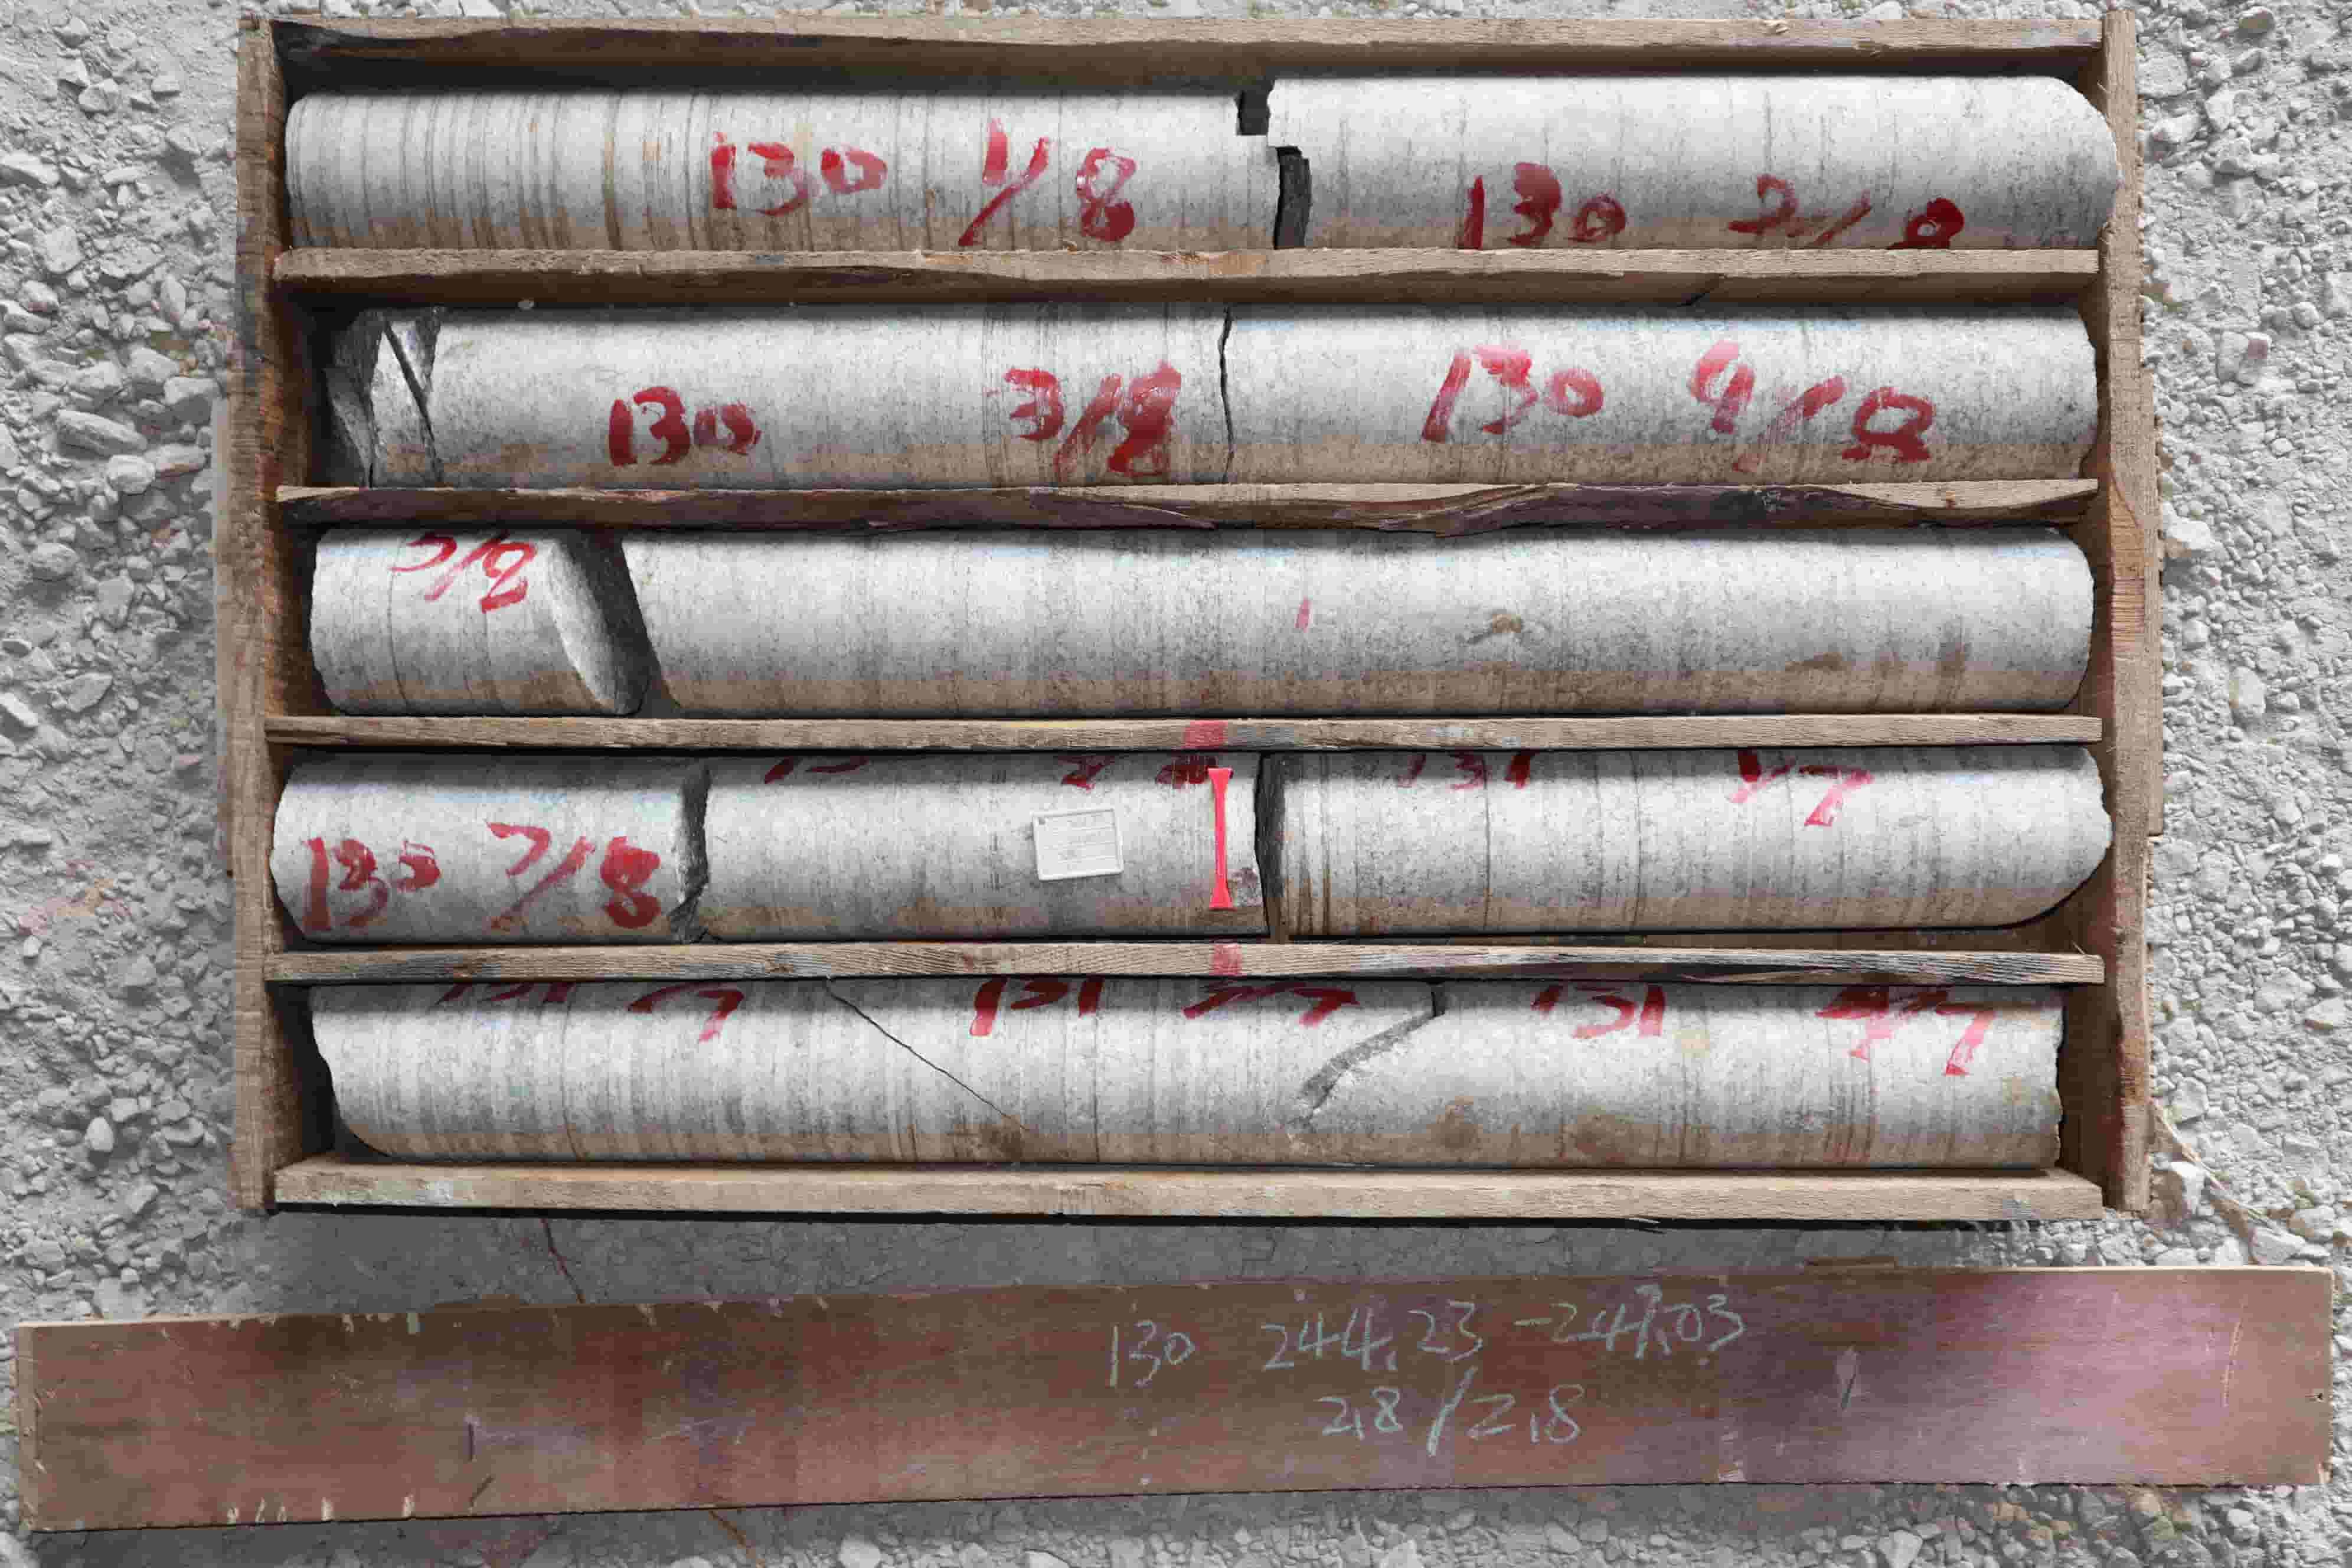 130 1/8
130 2/8
130 3/8
130 4/8
5/8
130 7/8
131 1/7
131 3/7
131 4/7
130 244.23-247.03
2.8/2.8